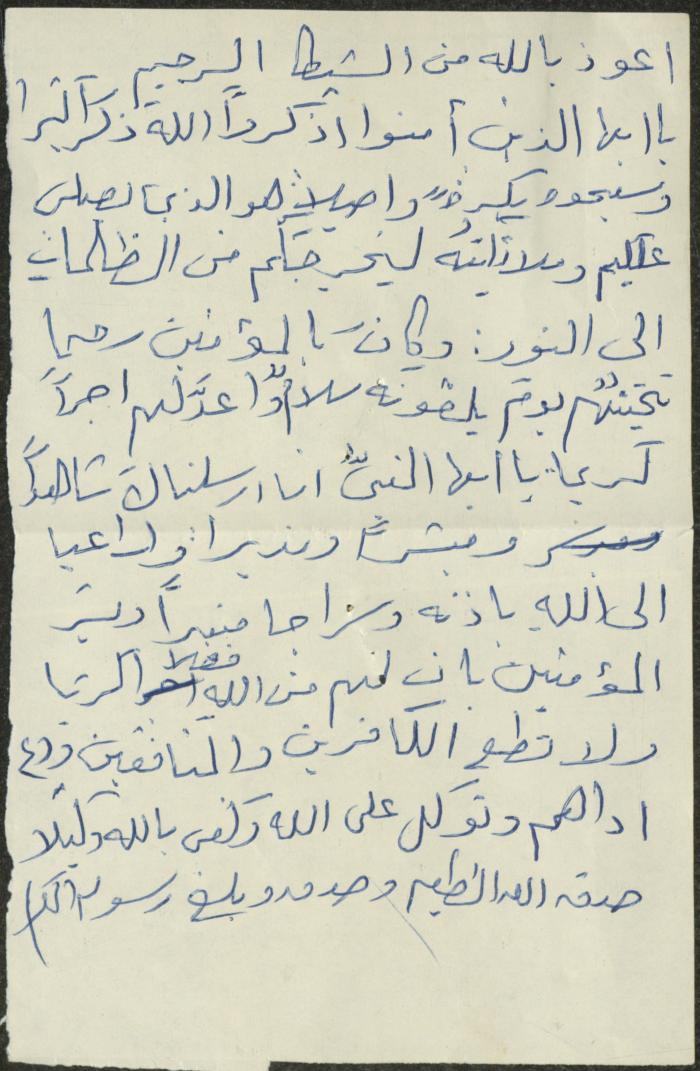 اعوذ بالله من الشيطا الرجيم
يا ايها الذين أمنوا اذكرواً الله ذكراً كثيرا
وسبحوه بكرةً واصيلاً هو الذي يصلى
عليكم وملائكتهُ ليخرجكم من الظلمات
الى النور: وكان بالمؤمنين رحيما
تحيتهُم يومَ يلقونه سلامٌ واعدَّ لهم اجراً
كريما: يا ايها النبيُّ انا ارسلناك شاهداً
ومبشراً ونذيرا وداعيا
الى الله باذنه وسراجا منيراً وبشر
المؤمنين بان لهم من الله فضلا كريما
ولا تطع الكافرين والمنافقين ودع
اداهم وتوكل على الله وكفى بالله وكيلا
صدق الله العظيم وصدق وبلغ رسوله الكرام